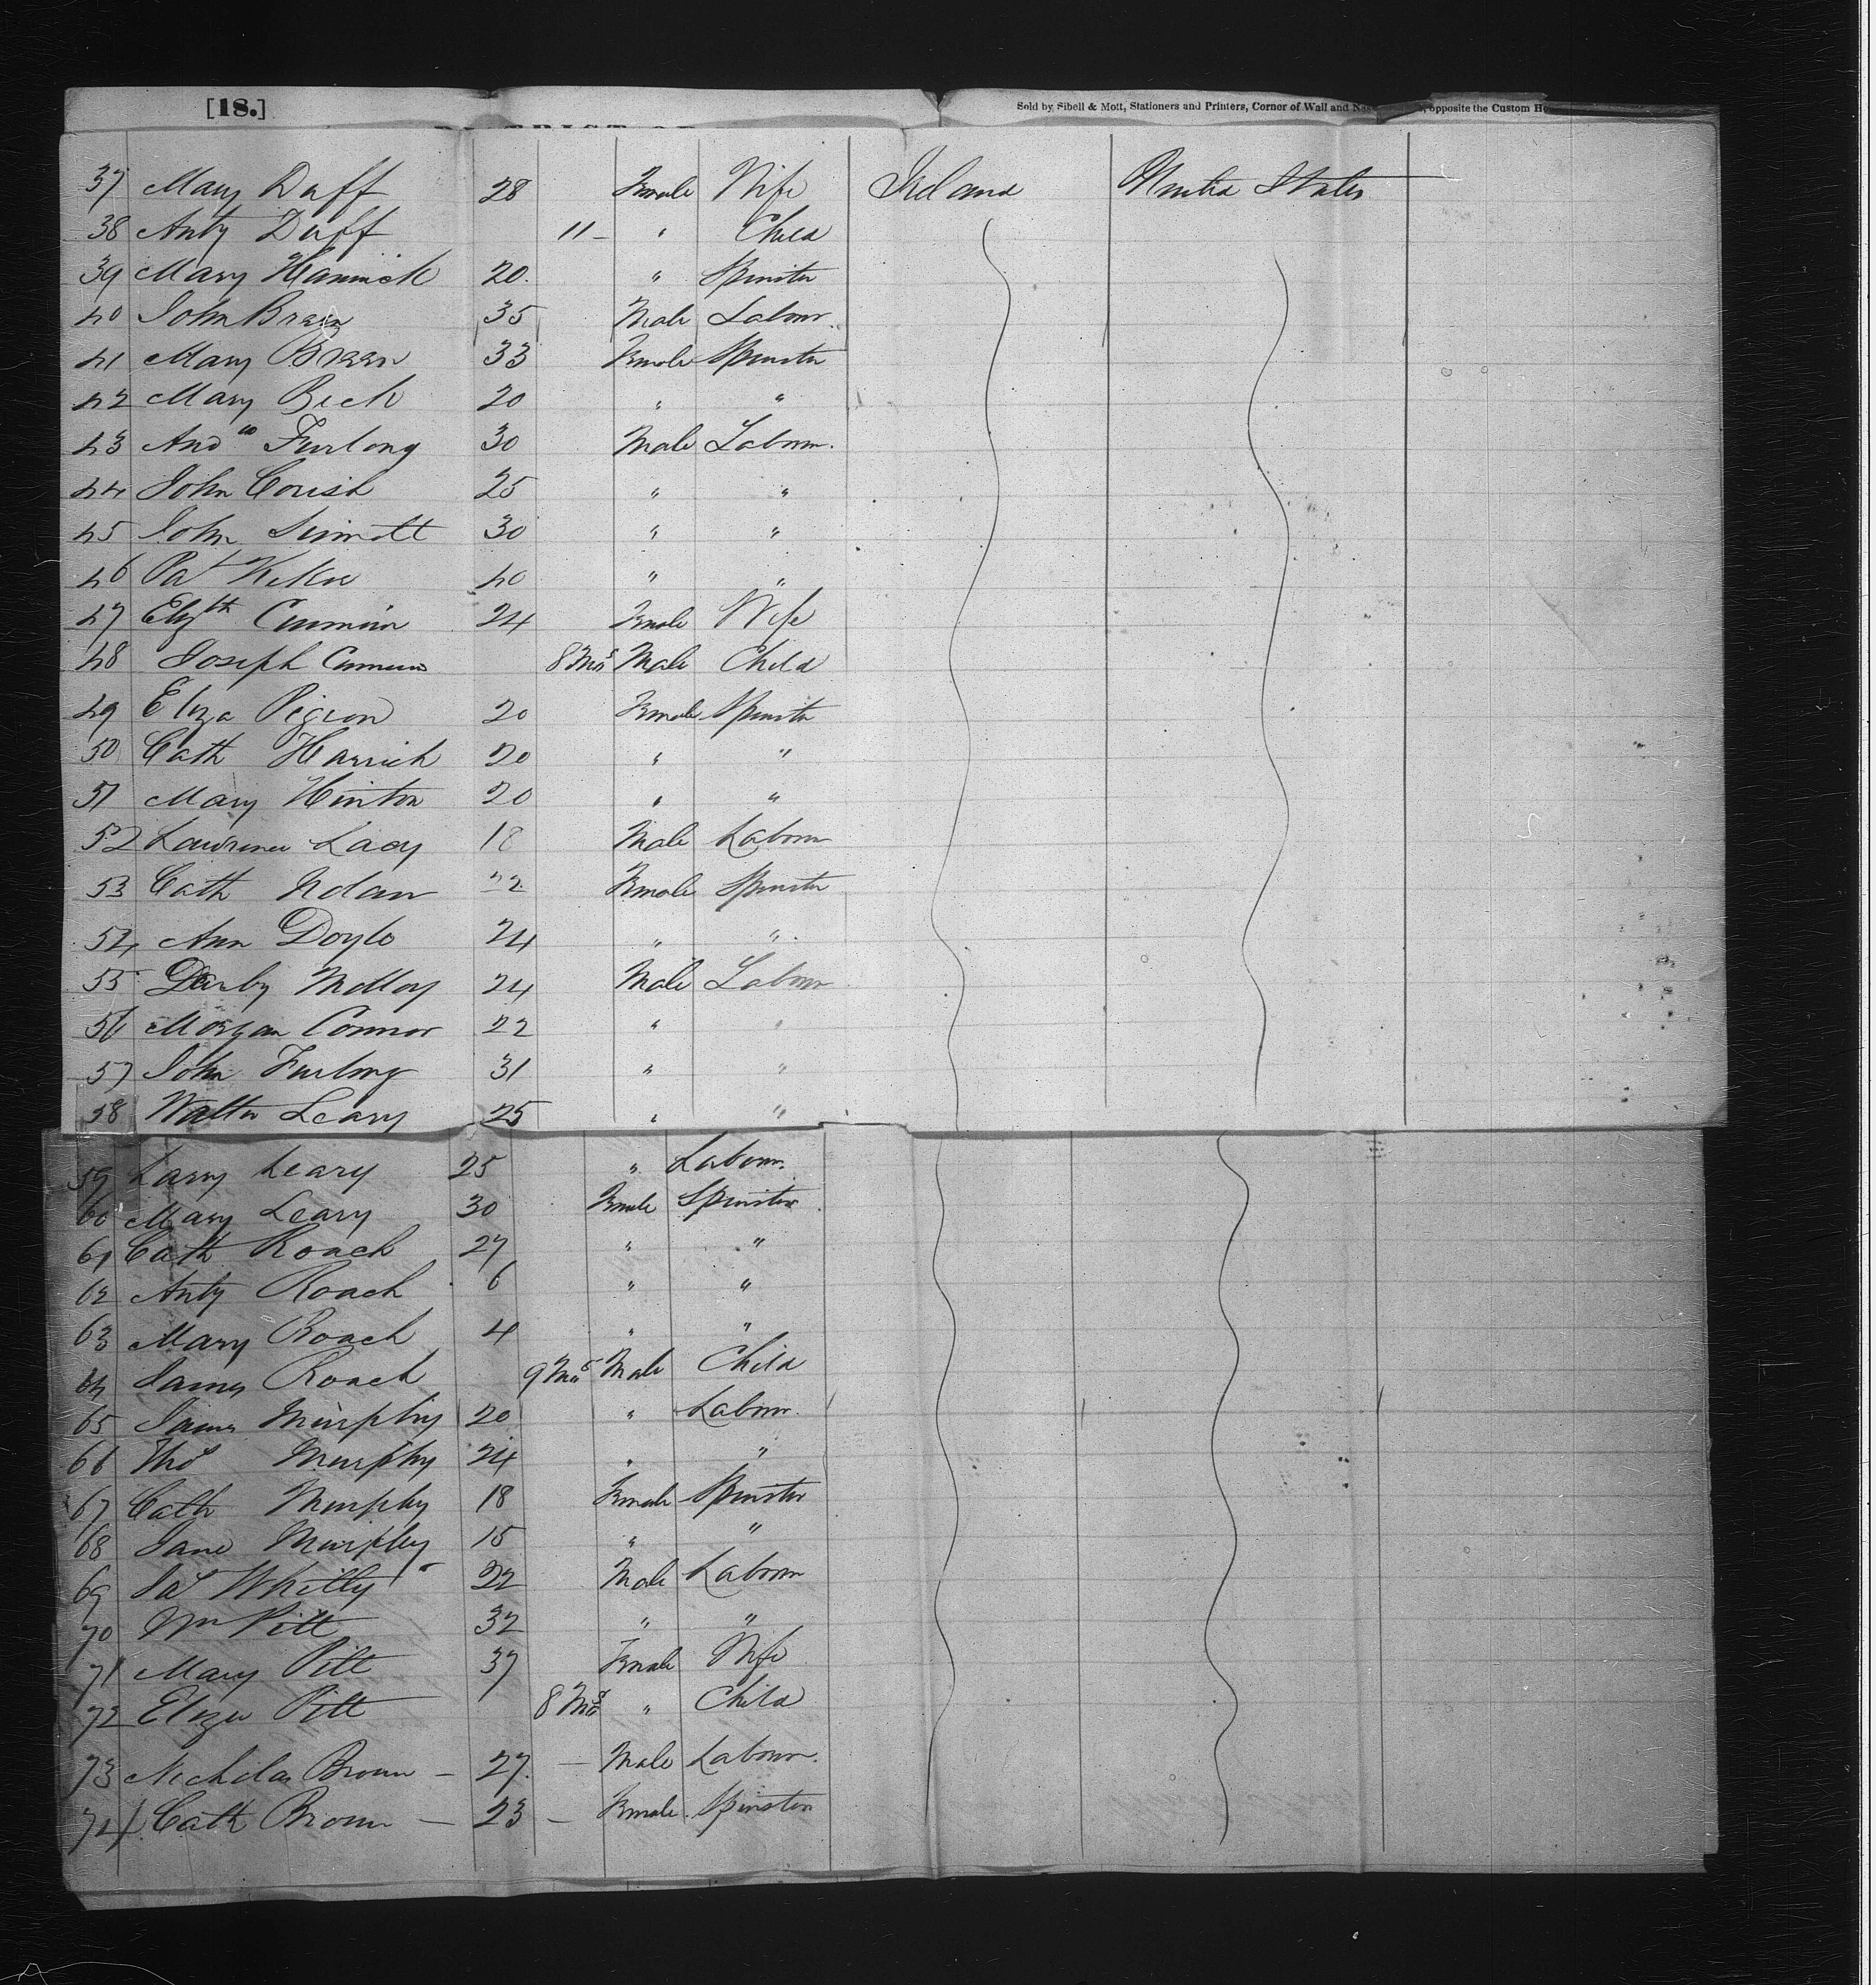 [18.] Sold by Sibell & Mott, Stationers and Printers, Corner of Wall and opposite the Custom
37 Mary Duff 28 Female Wife Ireland United States
38 Anty Duff 11 - " Child
39 Mary Hannick 20. " Spinster
40 John Breen 35 Male Labour.
41 Mary Breen 33 Female Spinster
42 Mary Beck 20 " "
43 Andw Furlong 30 Male Labour.
44 John Corish 25 " "
45 John Sinnott 30 " "
46 Pat 40 " "
47 Elizth Cummin 24 Female Wife
48 Joseph 8 Mos Male Child
49 Eliza Pigion 20 Female Spinster
50 Cath Harrick 20 " "
51 Mary Hinton 20 " "
52 Lawrence Lacy 18 Male Labour
53 Cath Nolan 22 Female Spinster
54 Ann Doyle 24 " "
55 Darby Molloy 24 Male Labour
56 Morgan Connor 22 " "
57 John Furlong 31 " "
58 Walter Leary 25 " "
59 Larry Leary 25 " Labour.
60 Mary Leary 30 Female Spinster
61 Cath Roach 27 " "
62 Anty Roach 6 " "
63 Mary Roach 4 " "
64 James Roach 9 Mos Male Child
65 James Murphy 20 " Labour.
66 Thos Murphy 24 " "
67 Cath Murphy 18 Female Spinster
68 Jane Murphy 15 " "
69 Jas Whitty 22 Male Labour
70 Wm Pitt 32 " "
71 Mary Pitt 37 Female Wife
72 Eliza Pitt 8 Mos " Child
73 Nicholas Brown - 27. - Male Labour.
74 Cath Brown - 23 - Female Spinster